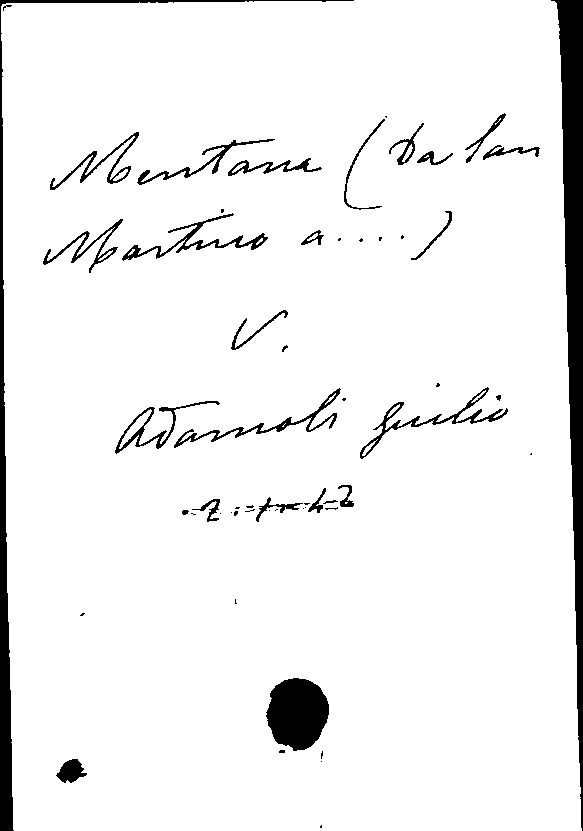 Mentana (Da San
Martino a....)
V.
Adamoli Giulio